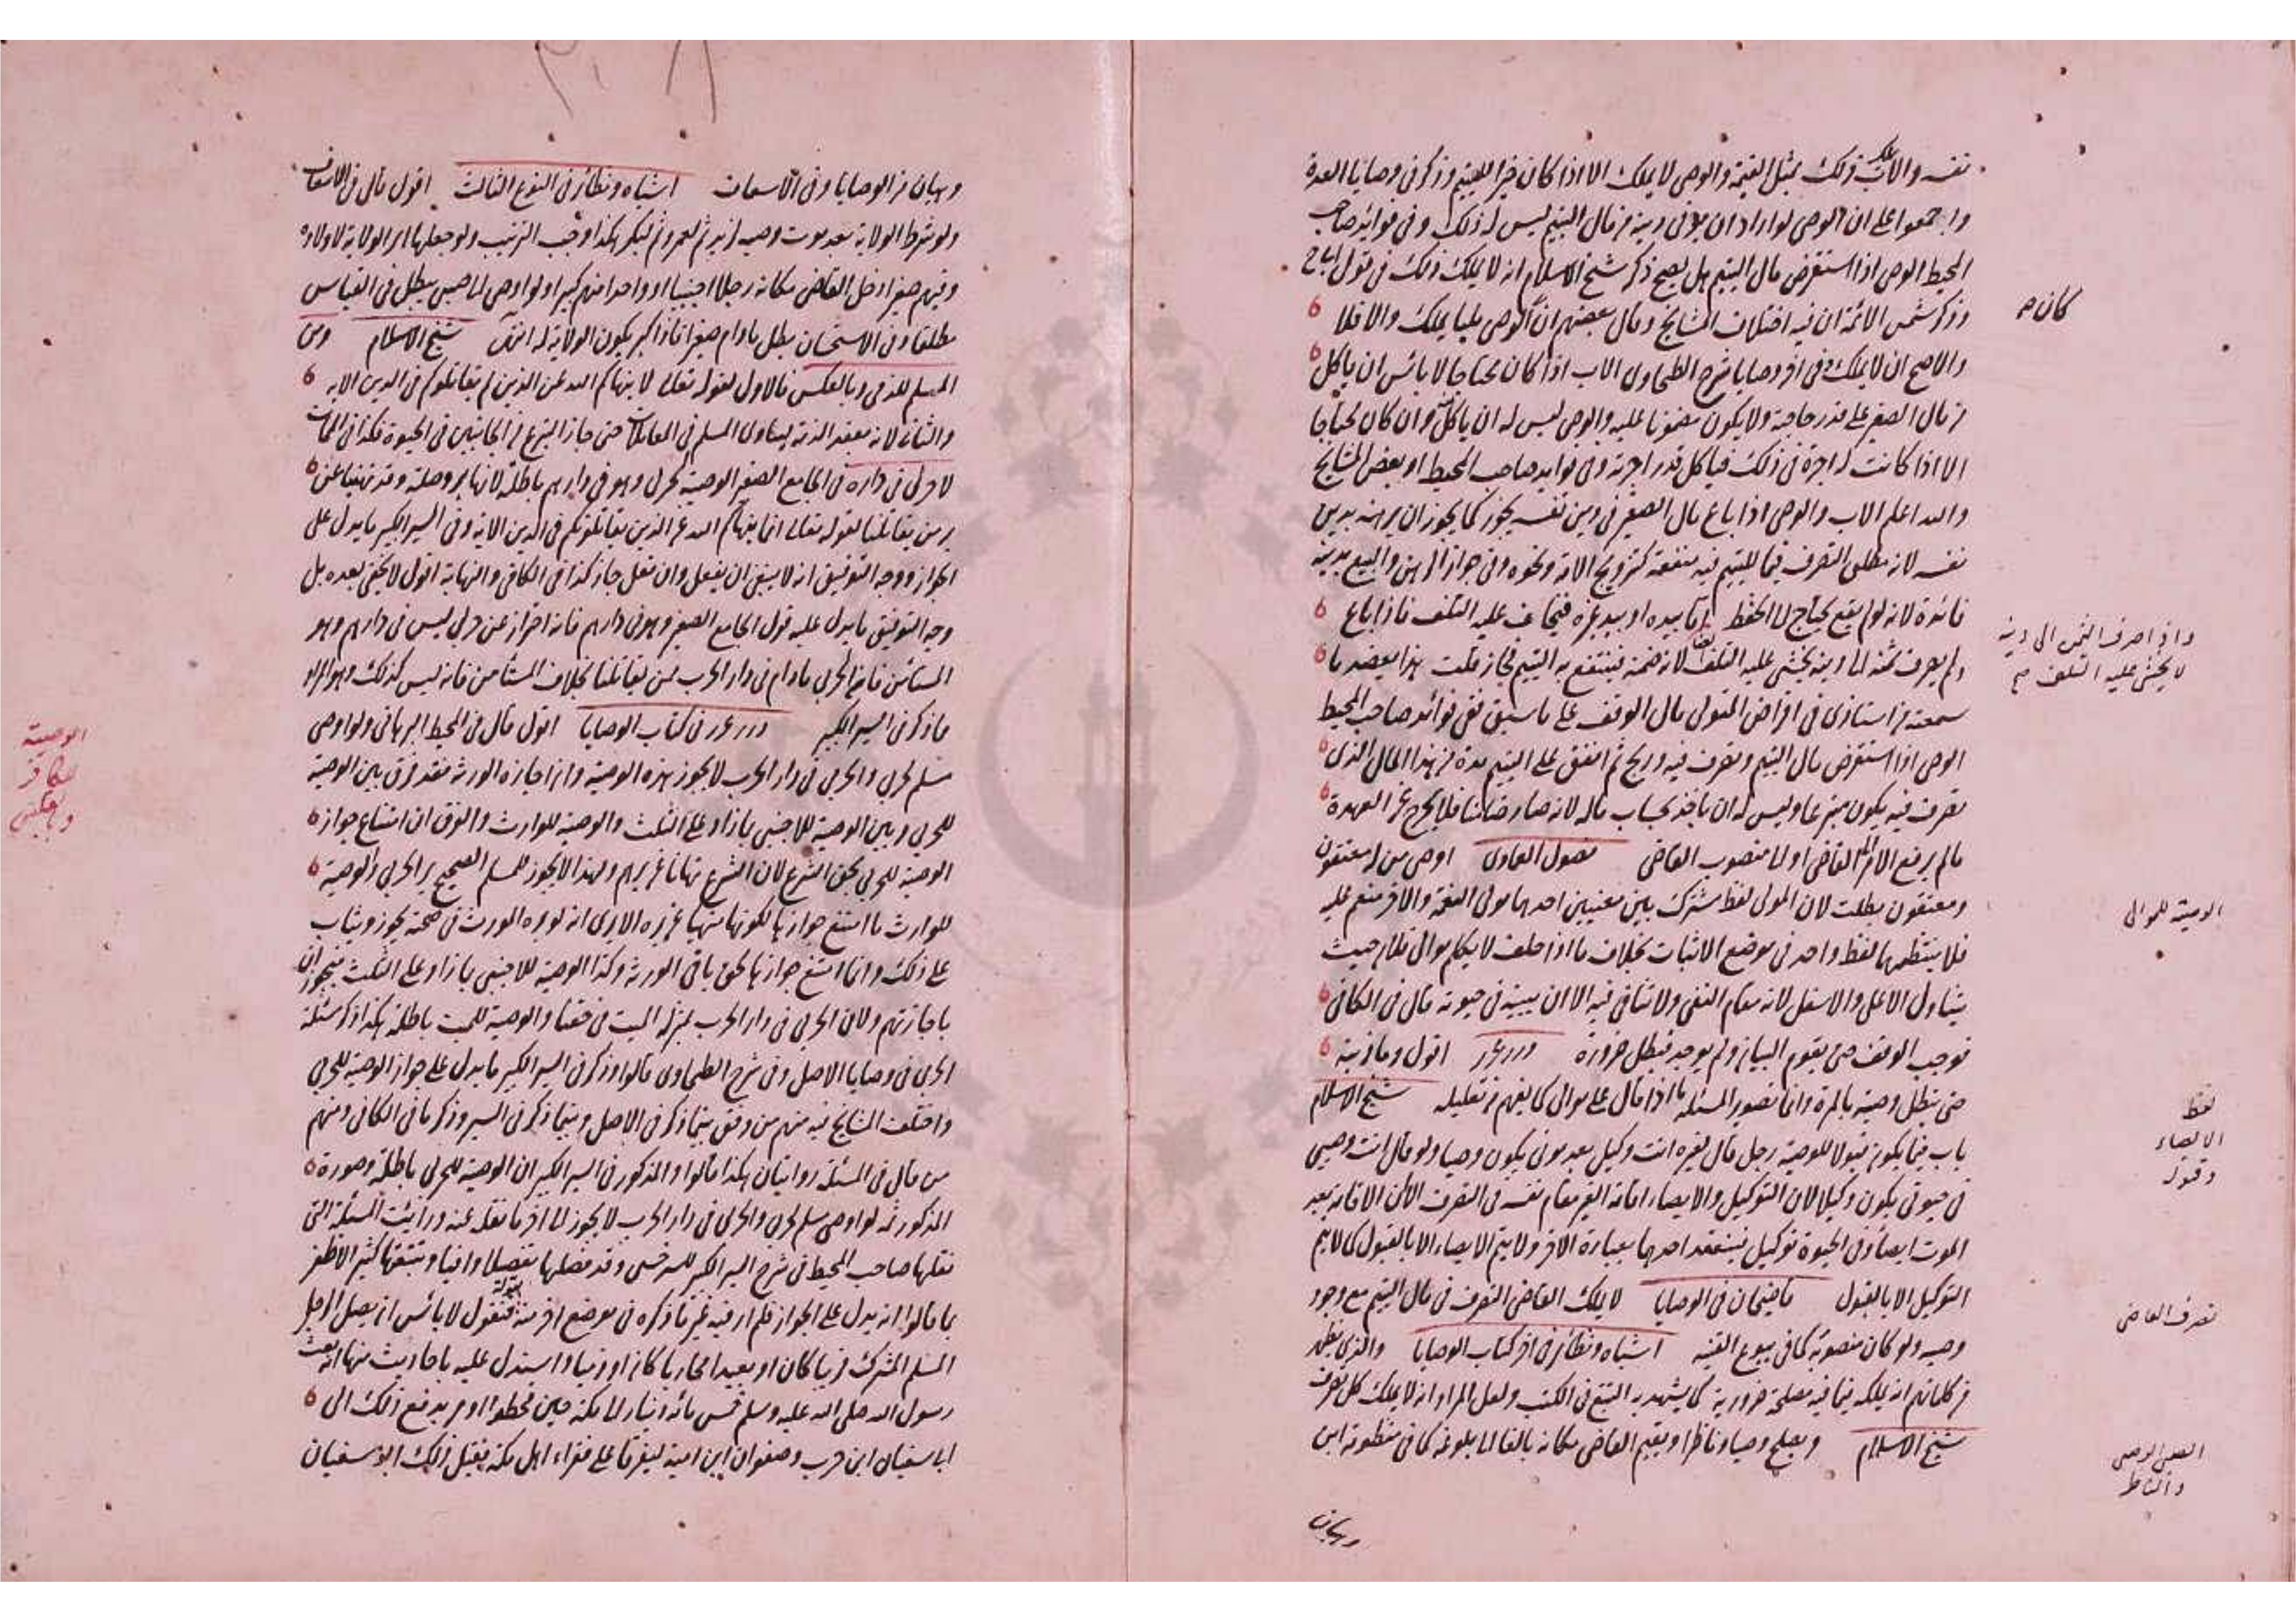 نفسه والاب يملك ذلك بمثل القيمة والوصى لا يملك الا اذا كان خيرا لليتيم وذكر فى وصايا العدة
واجمعوا على ان الوصى لو اراد ان يوفى دينه من مال اليتيم ليس له ذلك وفى فوائد صاحب
المحيط الوصى اذا استقرض مال اليتيم هل يصح ذكر شيخ الاسلام انه لا يملك ذلك فى قول
وذكر شمس الائمة ان فيه اختلاف المشايخ وقال بعضهم ان الوصى مليا يملك والا فلا
كان م
والاصح ان لا يملك وفى اخر وصايا شرح الطحاوى الاب اذا كان محتاجا لا بائس ان ياكل
من مال الصغير على قدر حاجته ولا يكون مضمونا عليه والوصى ليس له ان ياكل وان كان محتاجا
الا اذا كانت له اجرة فى ذلك فياكل قدر اجرته وفى فوايد صاحب المحيط او بعض المشايخ
والله اعلم الاب والوصى اذا باع مال الصغير فى دين نفسه يجوز كما يجوز ان يرهنه بدين
نفسه لانه مطلق التصرف فيما لليتيم فيه منفعة كتزويج الامة ونحوه وفى جواز الرهن والبيع بدينه
فائدة لانه لو لم يقع يحتاج الى الحفظ اما بيده او بيد غيره فيخاف عليه التلف فاذا باع
ولم يصرف ثمنه الى دينه يخشى عليه التلف ايضا لانه ضمنه فينتفع به اليتيم فجاز قلت بهذا يعضد ما
واذا صرف الثمن الى دينه
لا يخشى عليه التلف م
سمعته من استاذى فى اقراض المتولى مال الوقف على ما سبق ففى فوائد صاحب المحيط
الوصى اذا استقرض مال اليتيم وتصرف فيه وربح ثم انفق على اليتيم مدة من هذا المال الذى
تصرف فيه يكون متبرعا وليس له ان ياخذ بحساب ماله لانه صار ضامنا فلا يخرج عن العهدة
ما لم يرفع الامر الى القاضى او الى منصوب القاضى فصول العمادى اوصى من له معتقون
ومعتقون بطلت لان المولى لفظ مشترك بين معنيين احدهما مولى النعمة والاخر منعم عليه
الوصية للموالى
فلا ينتظمهما لفظ واحد فى موضع الاثبات بخلاف ما اذا حلف لا يكلم موالى فلان حيث
يتناول الاعلى والاسفل لانه مقام النفى ولا تنافى فيه الا ان يبينه فى حيوته قال فى الكافى
فوجب الوقف حتى يقوم البيان ولم يوجد فبطل ضرورة درر غرر اقول وما ذنبه
حتى تبطل وصيته بالمرة وانما تصور المسئلة ما اذا قال على موالى كما يفهم من تعليله شيخ الاسلام
لفظ
الايصاء
وقبوله
باب فيما يكون قبولا للوصية رجل قال لغيره انت وكيلى بعد موتى يكون وصيا ولو قال انت وصيى
فى حيوتى يكون وكيلا لان التوكيل والايصاء اقامة الغير مقام نفسه فى التصرف الا ان الاقامة بعد
الموت ايصاء وفى الحيوة توكيل فينعقد احدهما بعبارة الاخر ولا يتم الايصاء الا بالقبول كما لا يتم
التوكيل الا بالقبول قاضيخان فى الوصايا لا يملك القاضى التصرف فى مال اليتيم مع وجود
تصرف القاضى
وصيه ولو كان منصوبه كما فى بيوع القنية اشباه ونظائر فى اخر كتاب الوصايا والذى يظهر
من كلماتهم انه يملك فيما فيه مصلحة ضرورية كما يشهد به التتبع فى الكتب ولعل المراد انه لا يملك كل تصرف
شيخ الاسلام ويصلح وصيا وناظرا ويقيم القاضى مكانه بالغا الى بلوغه كما فى منظومة ابن
الصبى الوصى
والناظر
وهبان
وهبان من الوصايا وفى الاسعاف اشباه ونظائر فى النوع الثالث اقول قال فى الاسعاف
ولو شرط الولاية بعد موت وصيه لزيد ثم لعمرو ثم لبكر هكذا وجب الترتيب ولو جعلها اى الولاية لاولاده
وفيهم صغير ادخل القاضى مكانه رجلا اجنبيا او واحدا منهم كبيرا ولو اوصى الى صبى يبطل فى القياس
مطلقا وفى الاستحسان يبطل ما دام صغيرا فاذا كبر يكون الولاية له انتهى شيخ الاسلام ومن
المسلم للذمى وبالعكس فالاول لقوله تعالى لا ينهاكم الله عن الذين لم يقاتلوكم فى الدين الاية
والثانى لانه بعقد الذمة يساوى المسلم فى المعاملات حتى جاز التبرع من الجانبين فى الحيوة فكذا فى الممات
لا حربى فى داره فى الجامع الصغير الوصية لحربى وهو فى دارهم باطلة لانها بر وصلة وقد نهينا عن
بر من يقاتلنا لقوله تعالى انما ينهاكم الله عن الذين يقاتلونكم فى الدين الاية وفى السير الكبير ما يدل على
الجواز ووجه التوفيق انه لا ينبغى ان يفعل وان فعل جاز كذا فى الكافى والنهاية اقول لا يخفى بعده بل
وجه التوفيق ما يدل عليه قول الجامع الصغير وهو فى دارهم فانه احتراز عن حربى ليس فى دارهم وهو
المستأمن فان الحربى ما دام فى دار الحرب ممن يقاتلنا بخلاف المستأمن فانه ليس كذلك وهو المراد
ما ذكر فى السير الكبير درر غرر فى كتاب الوصايا اقول قال فى المحيط البرهانى ولو اوصى
الوصية
للكافر
وبالعكس
مسلم لحربى والحربى فى دار الحرب لا يجوز هذه الوصية وان اجازه الورثة فقد فرق بين الوصية
للحربى وبين الوصية للاجنبى بما زاد على الثلث والوصية للوارث والفرق ان امتناع جواز
الوصية للحربى لحق الشرع لان الشرع نهانا عن برهم ولهذا لا يجوز للمسلم الصحيح بر الحربى والوصية
للوارث ما امتنع جوازها لكونها منهيا عن بره الا يرى انه لو بره المورث فى صحته يجوز ويثاب
على ذلك وانما امتنع جوازها لحق باقى الورثة وكذا الوصية للاجنبى بما زاد على الثلث فيجوزان
باجازتهم ولان الحربى فى دار الحرب بمنزلة الميت فى حقنا والوصية للميت باطلة هكذا ذكر مسئلة
الحربى فى وصايا الاصل وفى شرح الطحاوى قالوا وذكر فى السير الكبير ما يدل على جواز الوصية للحربى
واختلف المشايخ فيه منهم من وفق بينما ذكر فى الاصل وبينما ذكر فى السير وذكر ما فى الكافى ومنهم
من قال فى المسئلة روايتان هكذا قالوا والمذكور فى السير الكبير ان الوصية للحربى باطلة وصورة
المذكور ثمه لو اوصى مسلم لحربى والحربى فى دار الحرب لا يجوز الى اخر ما نقله عنه ورائيت المسئلة التى
نقلها صاحب المحيط فى شرح السير الكبير للسرخسى وقد فصلها تفصيلا وافيا وتتبعتها كثيرا لاظفر
بما قالوا انه يدل على الجواز فلم ار فيه غير ما ذكره فى موضع اخر منه بقوله فنقول لا بائس ان يصل الرجل
المسلم المشرك قريبا كان او بعيدا محاربا كان او ذميا واستدل عليه باحاديث منها انه بعث
رسول الله صلى الله عليه وسلم خمس مائة دينار الى مكة حين قحطوا وامر بدفع ذلك الى
ابا سفيان ابن حرب وصفوان ابن امية ليفرقا على فقراء اهل مكة فقبل ذلك ابو سفيان